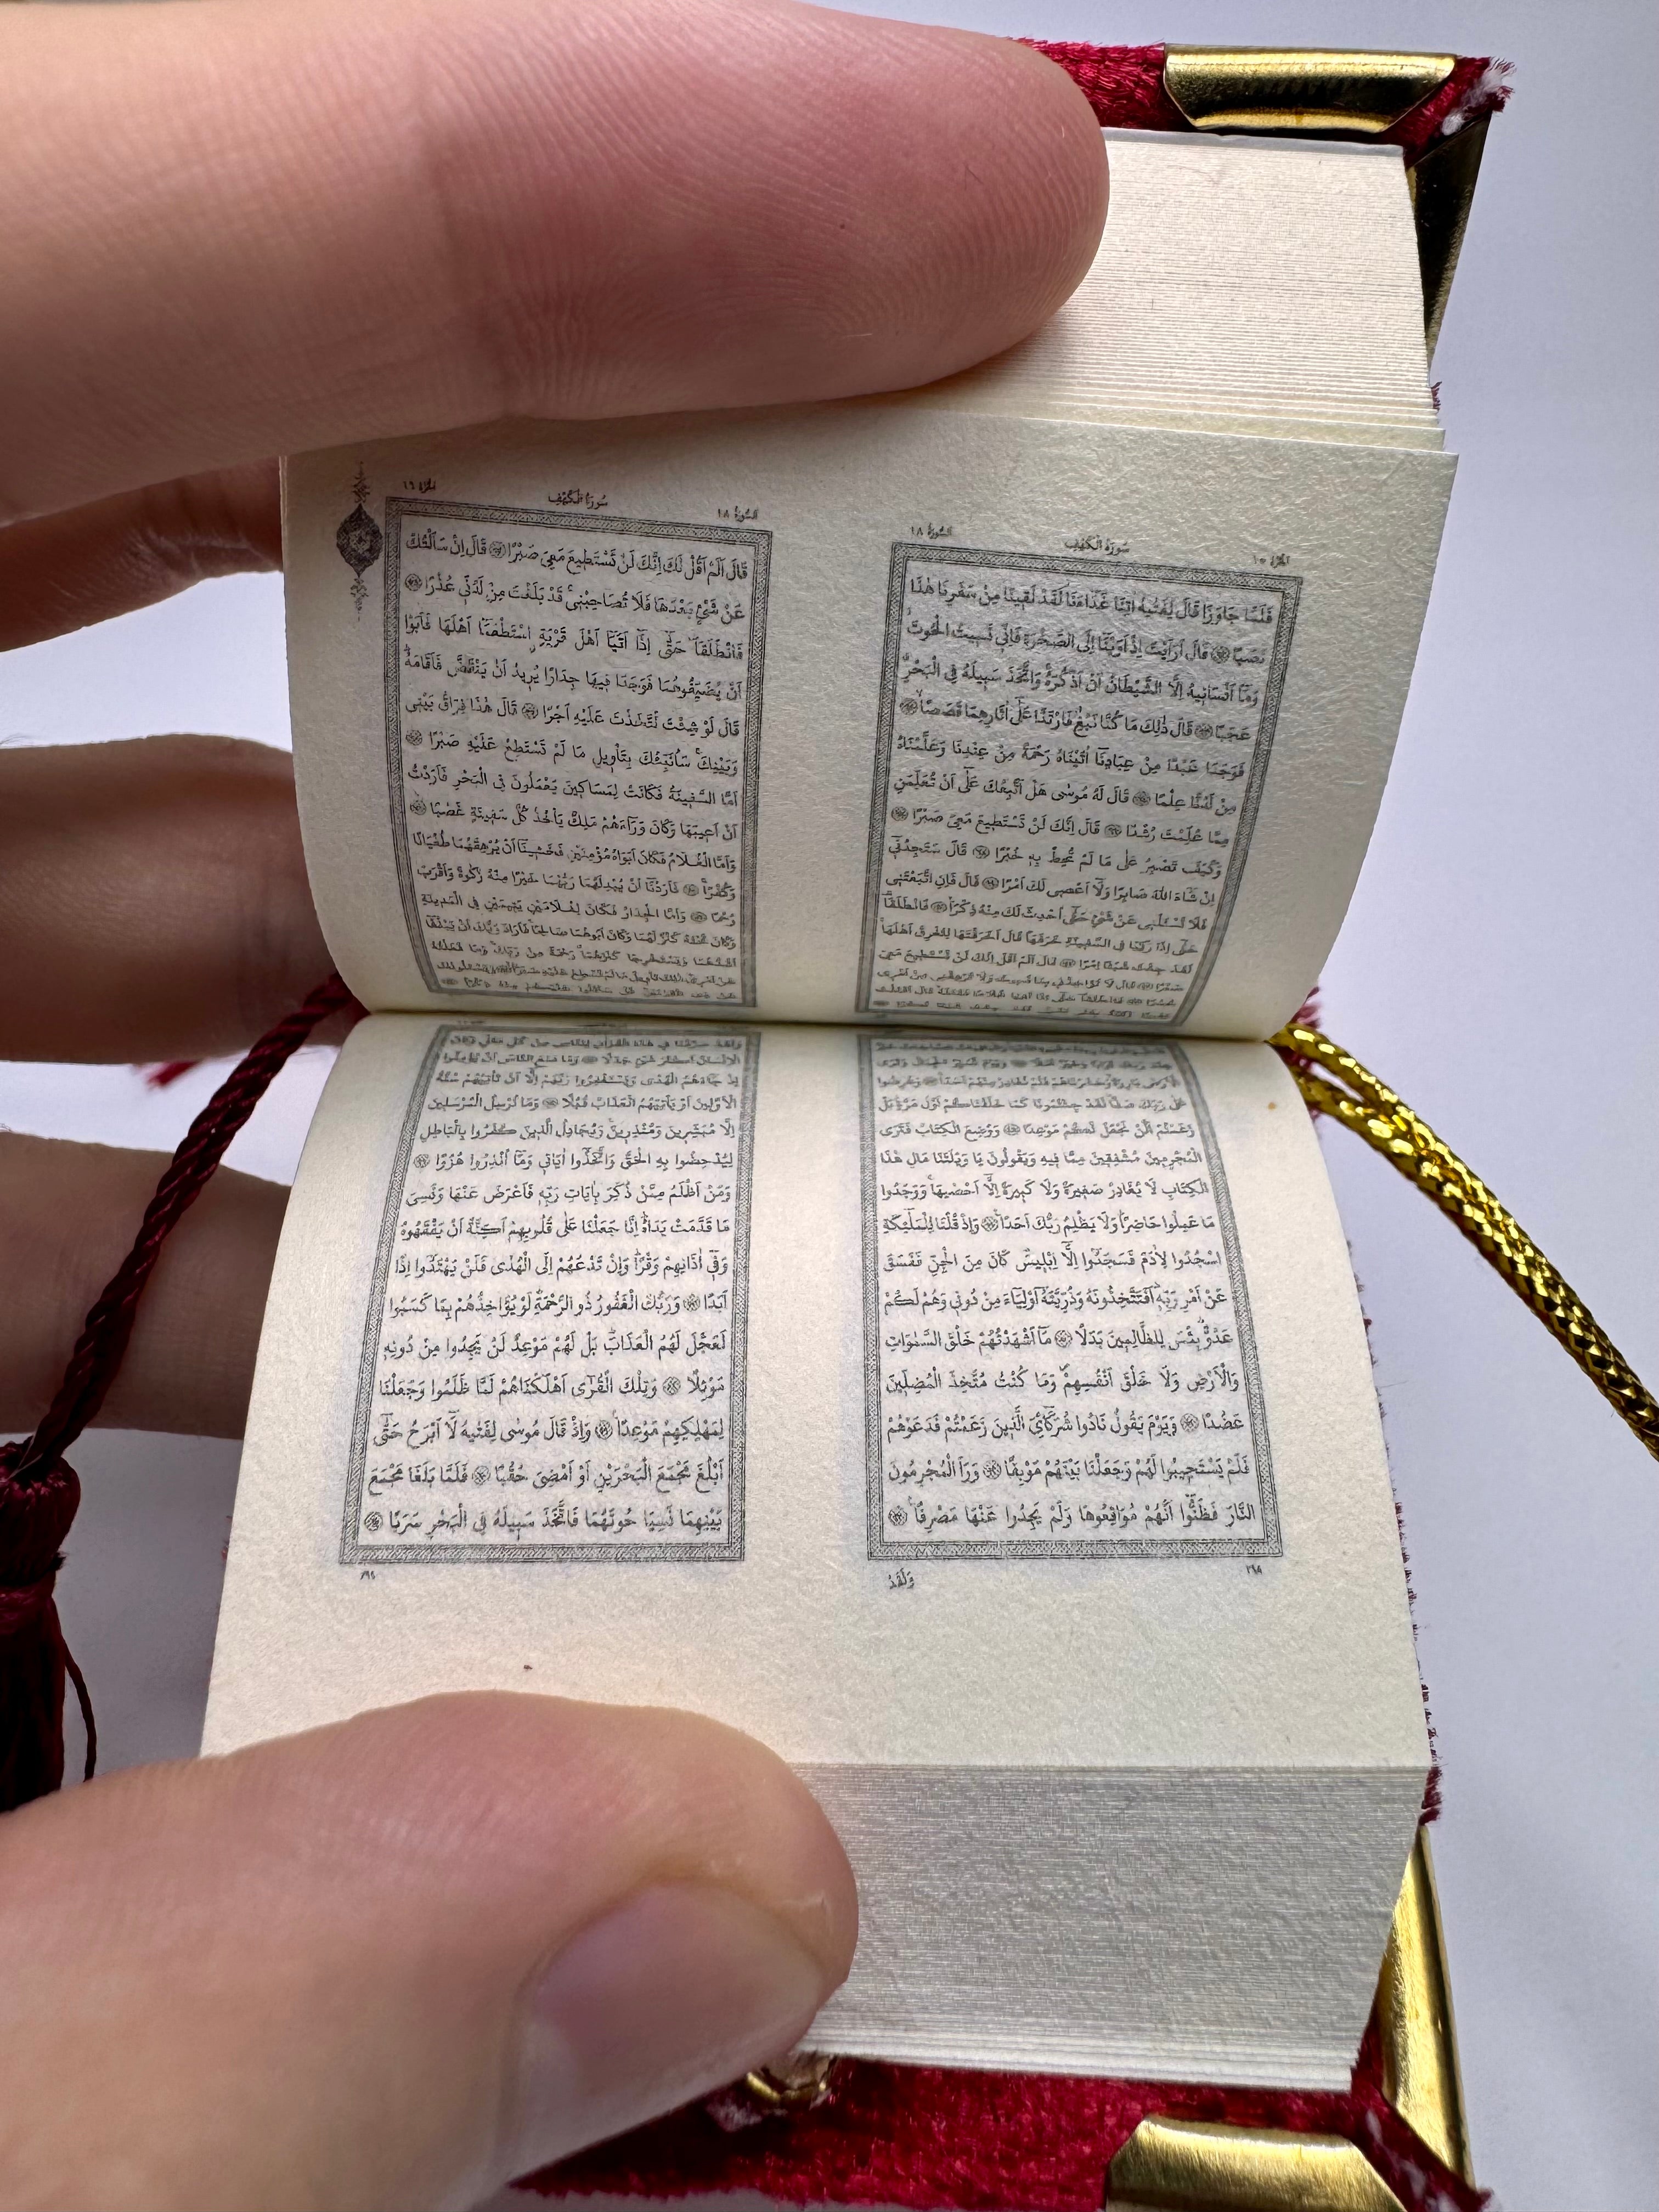 الجزء ١٥
سُورَةُ الْكَهْفِ
السورة ١٨
فَلَمَّا جَاوَزَا قَالَ لِفَتٰيهُ اٰتِنَا غَدَاءَنَا لَقَدْ لَقِينَا مِنْ سَفَرِنَا هٰذَا
نَصَبًا ۝ قَالَ اَرَاَيْتَ اِذْ اَوَيْنَا اِلَى الصَّخْرَةِ فَاِنِّي نَسِيتُ الْحُوتَ
وَمَا اَنْسَانِيهُ اِلَّا الشَّيْطَانُ اَنْ اَذْكُرَهُ وَاتَّخَذَ سَبِيلَهُ فِي الْبَحْرِ
عَجَبًا ۝ قَالَ ذٰلِكَ مَا كُنَّا نَبْغِ فَارْتَدَّا عَلٰى اٰثَارِهِمَا قَصَصًا ۝
فَوَجَدَا عَبْدًا مِنْ عِبَادِنَا اٰتَيْنَاهُ رَحْمَةً مِنْ عِنْدِنَا وَعَلَّمْنَاهُ
مِنْ لَدُنَّا عِلْمًا ۝ قَالَ لَهُ مُوسٰى هَلْ اَتَّبِعُكَ عَلٰى اَنْ تُعَلِّمَنِ
مِمَّا عُلِّمْتَ رُشْدًا ۝ قَالَ اِنَّكَ لَنْ تَسْتَطِيعَ مَعِيَ صَبْرًا ۝
وَكَيْفَ تَصْبِرُ عَلٰى مَا لَمْ تُحِطْ بِهِ خُبْرًا ۝ قَالَ سَتَجِدُنِي
اِنْ شَاءَ اللهُ صَابِرًا وَلَا اَعْصِي لَكَ اَمْرًا ۝ قَالَ فَاِنِ اتَّبَعْتَنِي
فَلَا تَسْـَٔلْنِي عَنْ شَيْءٍ حَتّٰى اُحْدِثَ لَكَ مِنْهُ ذِكْرًا ۝ فَانْطَلَقَا
حَتّٰى اِذَا رَكِبَا فِي السَّفِينَةِ خَرَقَهَا قَالَ اَخَرَقْتَهَا لِتُغْرِقَ اَهْلَهَا
لَقَدْ جِئْتَ شَيْئًا اِمْرًا ۝ قَالَ اَلَمْ اَقُلْ اِنَّكَ لَنْ تَسْتَطِيعَ مَعِيَ
الجزء ١٦
سُورَةُ الْكَهْفِ
السورة ١٨
قَالَ اَلَمْ اَقُلْ لَكَ اِنَّكَ لَنْ تَسْتَطِيعَ مَعِيَ صَبْرًا ۝ قَالَ اِنْ سَاَلْتُكَ
عَنْ شَيْءٍ بَعْدَهَا فَلَا تُصَاحِبْنِي قَدْ بَلَغْتَ مِنْ لَدُنِّي عُذْرًا ۝
فَانْطَلَقَا حَتّٰى اِذَا اَتَيَا اَهْلَ قَرْيَةٍ اسْتَطْعَمَا اَهْلَهَا فَاَبَوْا
اَنْ يُضَيِّفُوهُمَا فَوَجَدَا فِيهَا جِدَارًا يُرِيدُ اَنْ يَنْقَضَّ فَاَقَامَهُ
قَالَ لَوْ شِئْتَ لَتَّخَذْتَ عَلَيْهِ اَجْرًا ۝ قَالَ هٰذَا فِرَاقُ بَيْنِي
وَبَيْنِكَ سَاُنَبِّئُكَ بِتَاْوِيلِ مَا لَمْ تَسْتَطِعْ عَلَيْهِ صَبْرًا ۝
اَمَّا السَّفِينَةُ فَكَانَتْ لِمَسَاكِينَ يَعْمَلُونَ فِي الْبَحْرِ فَاَرَدْتُ
اَنْ اَعِيبَهَا وَكَانَ وَرَاءَهُمْ مَلِكٌ يَاْخُذُ كُلَّ سَفِينَةٍ غَصْبًا ۝
وَاَمَّا الْغُلَامُ فَكَانَ اَبَوَاهُ مُؤْمِنَيْنِ فَخَشِينَا اَنْ يُرْهِقَهُمَا طُغْيَانًا
وَكُفْرًا ۝ فَاَرَدْنَا اَنْ يُبْدِلَهُمَا رَبُّهُمَا خَيْرًا مِنْهُ زَكٰوةً وَاَقْرَبَ
رُحْمًا ۝ وَاَمَّا الْجِدَارُ فَكَانَ لِغُلَامَيْنِ يَتِيمَيْنِ فِي الْمَدِينَةِ
وَكَانَ تَحْتَهُ كَنْزٌ لَهُمَا وَكَانَ اَبُوهُمَا صَالِحًا فَاَرَادَ رَبُّكَ اَنْ يَبْلُغَا
عَلٰى رَبِّكَ صَفًّا لَقَدْ جِئْتُمُونَا كَمَا خَلَقْنَاكُمْ اَوَّلَ مَرَّةٍ بَلْ
زَعَمْتُمْ اَلَّنْ نَجْعَلَ لَكُمْ مَوْعِدًا ۝ وَوُضِعَ الْكِتَابُ فَتَرَى
الْمُجْرِمِينَ مُشْفِقِينَ مِمَّا فِيهِ وَيَقُولُونَ يَا وَيْلَتَنَا مَالِ هٰذَا
الْكِتَابِ لَا يُغَادِرُ صَغِيرَةً وَلَا كَبِيرَةً اِلَّا اَحْصٰيهَا وَوَجَدُوا
مَا عَمِلُوا حَاضِرًا وَلَا يَظْلِمُ رَبُّكَ اَحَدًا ۝ وَاِذْ قُلْنَا لِلْمَلٰئِكَةِ
اسْجُدُوا لِاٰدَمَ فَسَجَدُوا اِلَّا اِبْلِيسَ كَانَ مِنَ الْجِنِّ فَفَسَقَ
عَنْ اَمْرِ رَبِّهِ اَفَتَتَّخِذُونَهُ وَذُرِّيَّتَهُ اَوْلِيَاءَ مِنْ دُونِي وَهُمْ لَكُمْ
عَدُوٌّ بِئْسَ لِلظَّالِمِينَ بَدَلًا ۝ مَا اَشْهَدْتُهُمْ خَلْقَ السَّمٰوَاتِ
وَالْاَرْضِ وَلَا خَلْقَ اَنْفُسِهِمْ وَمَا كُنْتُ مُتَّخِذَ الْمُضِلِّينَ
عَضُدًا ۝ وَيَوْمَ يَقُولُ نَادُوا شُرَكَائِيَ الَّذِينَ زَعَمْتُمْ فَدَعَوْهُمْ
فَلَمْ يَسْتَجِيبُوا لَهُمْ وَجَعَلْنَا بَيْنَهُمْ مَوْبِقًا ۝ وَرَاَ الْمُجْرِمُونَ
النَّارَ فَظَنُّوا اَنَّهُمْ مُوَاقِعُوهَا وَلَمْ يَجِدُوا عَنْهَا مَصْرِفًا ۝
٢٩٨
وَلَقَدْ
اِذْ جَاءَهُمُ الْهُدٰى وَيَسْتَغْفِرُوا رَبَّهُمْ اِلَّا اَنْ تَاْتِيَهُمْ سُنَّةُ
الْاَوَّلِينَ اَوْ يَاْتِيَهُمُ الْعَذَابُ قُبُلًا ۝ وَمَا نُرْسِلُ الْمُرْسَلِينَ
اِلَّا مُبَشِّرِينَ وَمُنْذِرِينَ وَيُجَادِلُ الَّذِينَ كَفَرُوا بِالْبَاطِلِ
لِيُدْحِضُوا بِهِ الْحَقَّ وَاتَّخَذُوا اٰيَاتِي وَمَا اُنْذِرُوا هُزُوًا ۝
وَمَنْ اَظْلَمُ مِمَّنْ ذُكِّرَ بِاٰيَاتِ رَبِّهِ فَاَعْرَضَ عَنْهَا وَنَسِيَ
مَا قَدَّمَتْ يَدَاهُ اِنَّا جَعَلْنَا عَلٰى قُلُوبِهِمْ اَكِنَّةً اَنْ يَفْقَهُوهُ
وَفِي اٰذَانِهِمْ وَقْرًا وَاِنْ تَدْعُهُمْ اِلَى الْهُدٰى فَلَنْ يَهْتَدُوا اِذًا
اَبَدًا ۝ وَرَبُّكَ الْغَفُورُ ذُو الرَّحْمَةِ لَوْ يُؤَاخِذُهُمْ بِمَا كَسَبُوا
لَعَجَّلَ لَهُمُ الْعَذَابَ بَلْ لَهُمْ مَوْعِدٌ لَنْ يَجِدُوا مِنْ دُونِهِ
مَوْئِلًا ۝ وَتِلْكَ الْقُرٰى اَهْلَكْنَاهُمْ لَمَّا ظَلَمُوا وَجَعَلْنَا
لِمَهْلِكِهِمْ مَوْعِدًا ۝ وَاِذْ قَالَ مُوسٰى لِفَتٰيهُ لَا اَبْرَحُ حَتّٰى
اَبْلُغَ مَجْمَعَ الْبَحْرَيْنِ اَوْ اَمْضِيَ حُقُبًا ۝ فَلَمَّا بَلَغَا مَجْمَعَ
بَيْنِهِمَا نَسِيَا حُوتَهُمَا فَاتَّخَذَ سَبِيلَهُ فِي الْبَحْرِ سَرَبًا ۝